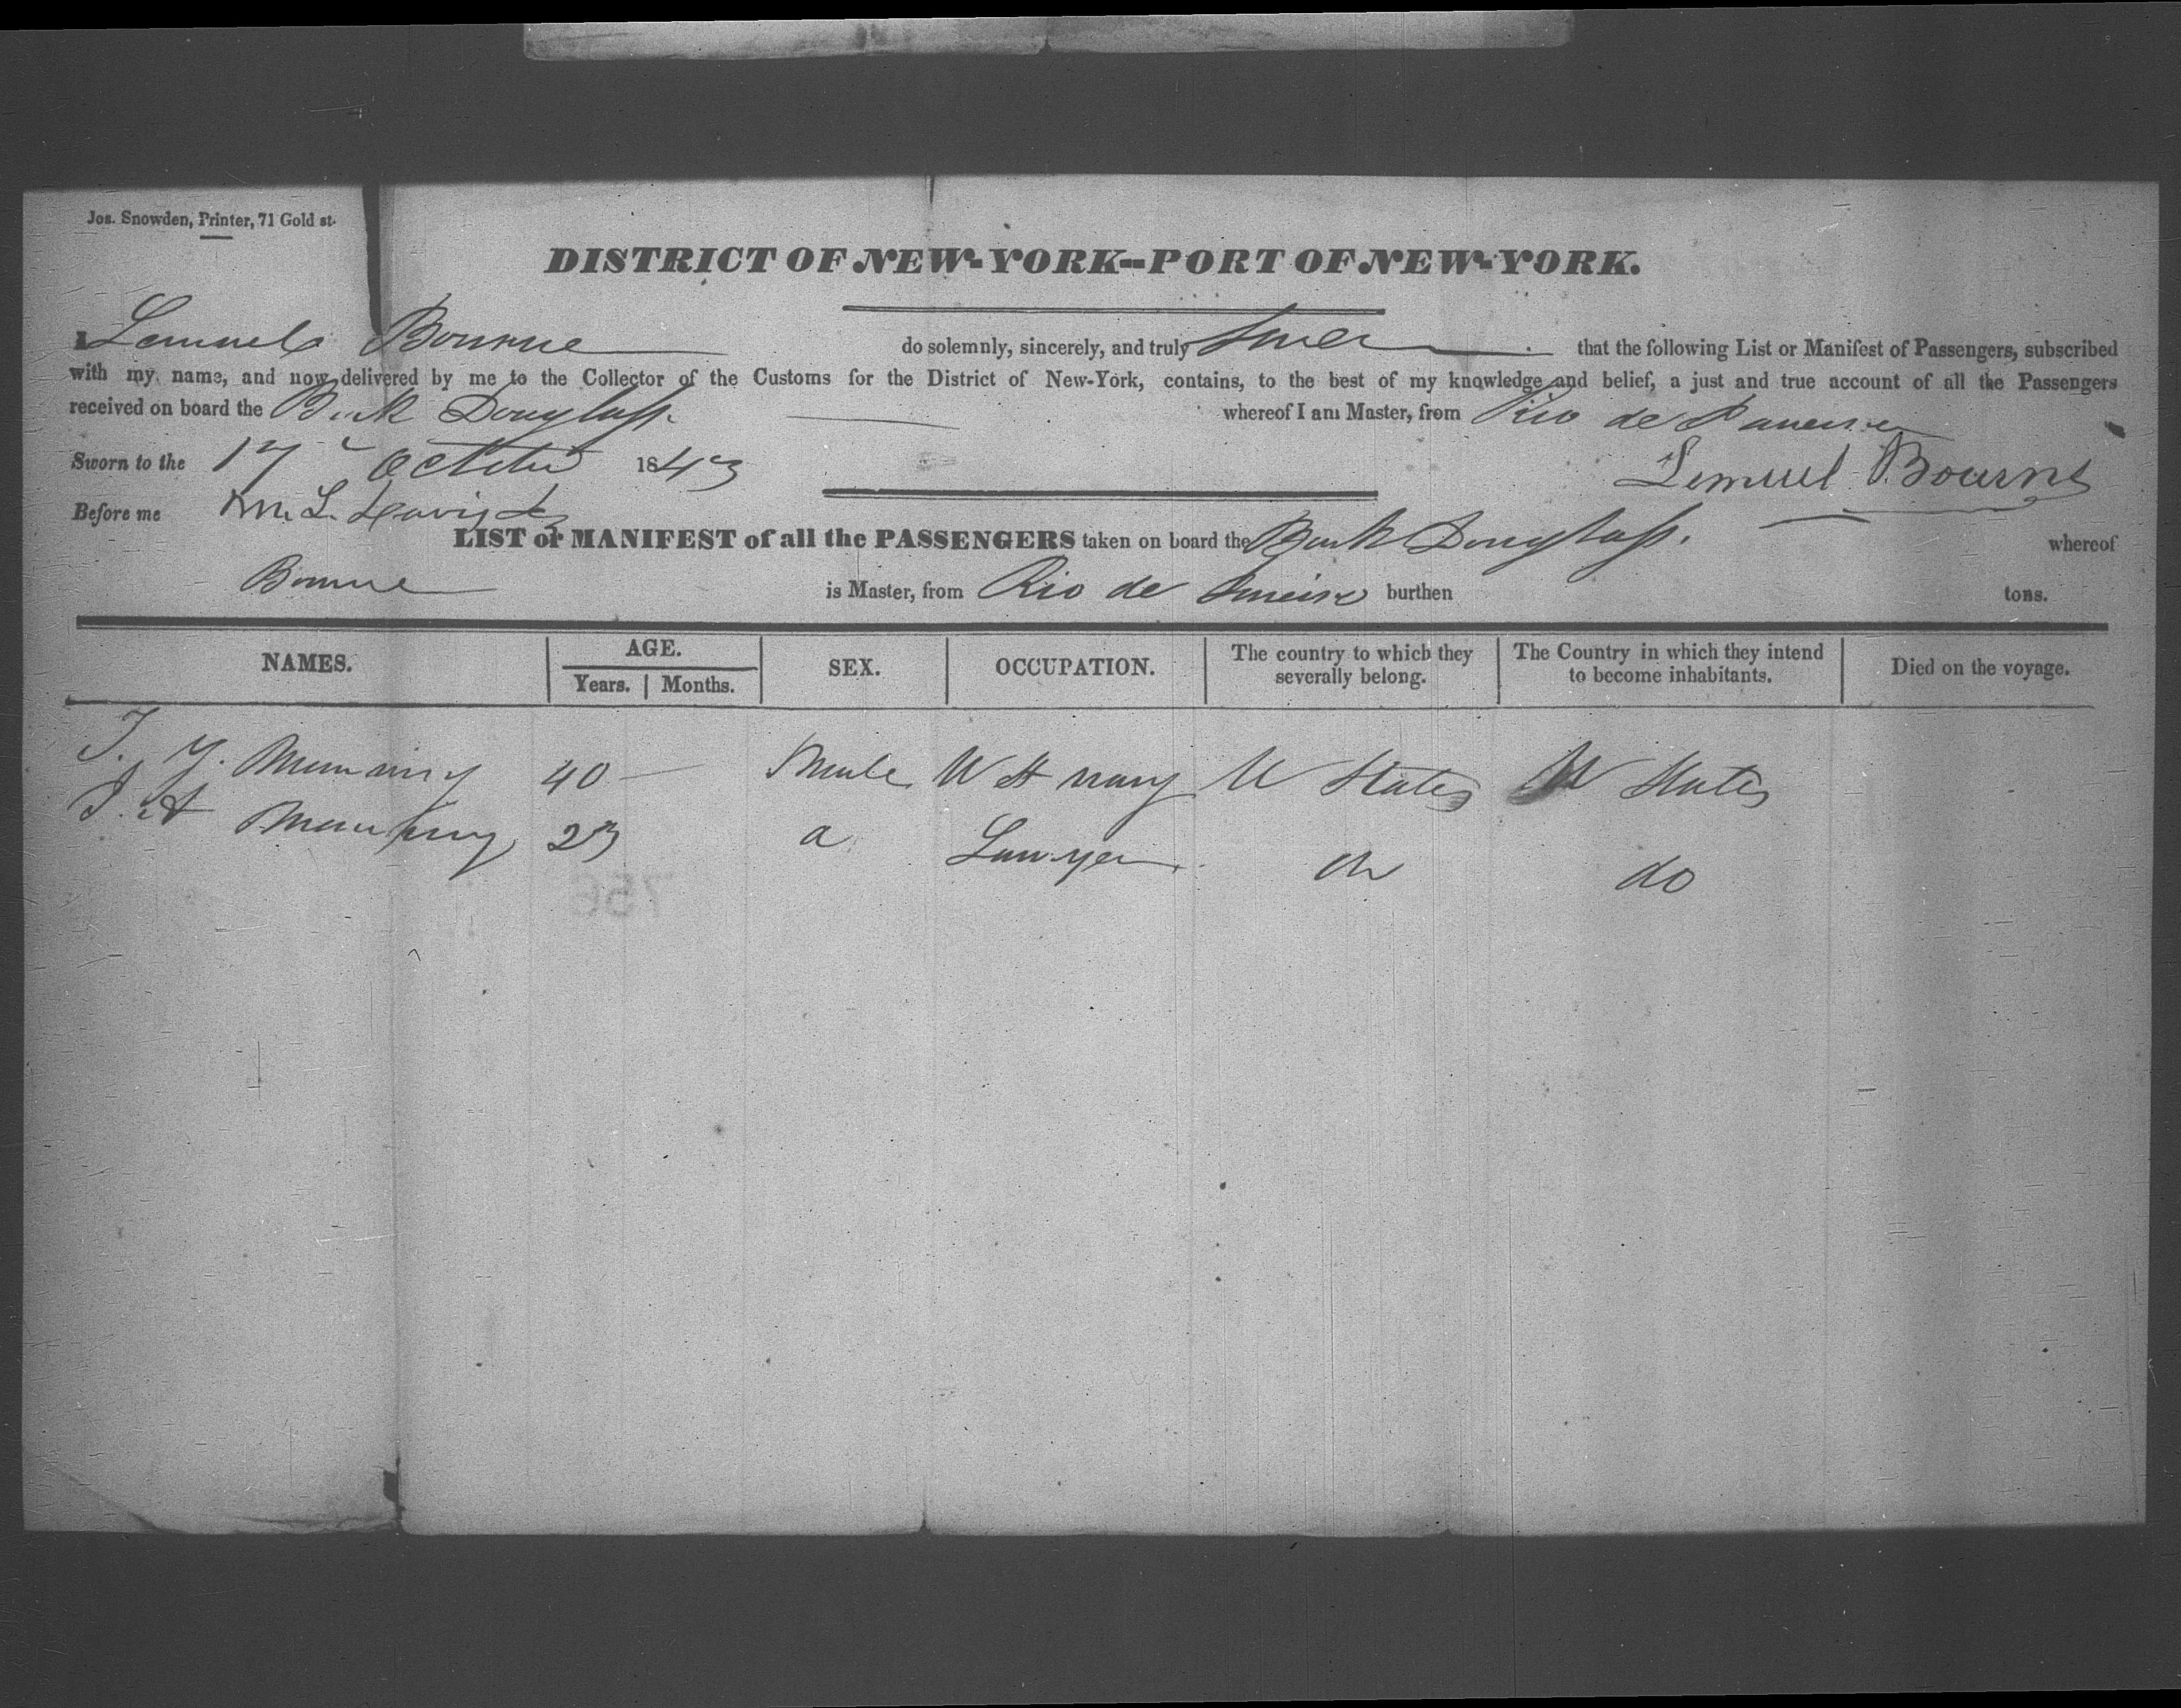 Jos. Snowden, Printer, 71 Gold st.
DISTRICT OF NEW-YORK--PORT OF NEW-YORK.
I Lemuel Bourne do solemnly, sincerely, and truly swear that the following List or Manifest of Passengers, subscribed
with my name, and now delivered by me to the Collector of the Customs for the District of New-York, contains, to the best of my knowledge and belief, a just and true account of all the Passengers
received on board the Bark Douglass. whereof I am Master, from Rio de Janeiro
Sworn to the 17 October 1843
Lemuel Bourne
Before me
LIST or MANIFEST of all the PASSENGERS taken on board the Bark Douglass. whereof
Bourne is Master, from Rio de Janeiro burthen tons.
NAMES. AGE. Years. Months. SEX. OCCUPATION. The country to which they severally belong. The Country in which they intend to become inhabitants. Died on the voyage.
40 Male U St navy U States U States
23 Lawyer do do